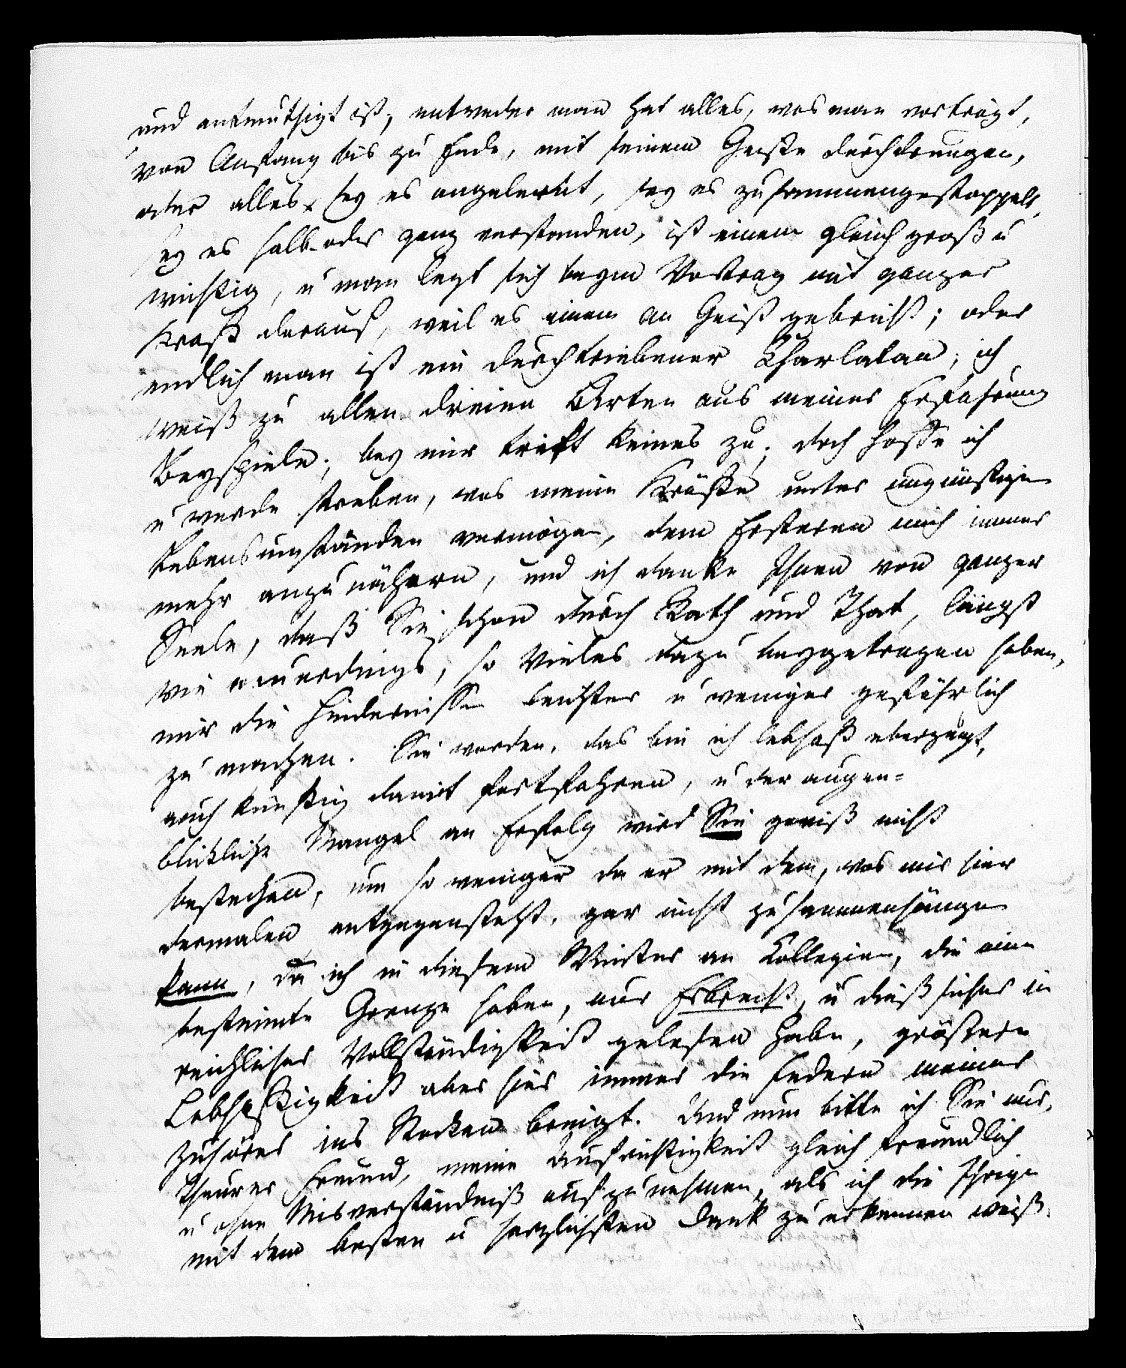 und entmuthigt ist; entweder man hat alles, was man vorträgt,
von Anfang bis zu Ende, mit seinem Geiste durchdrungen,
oder alles, sey es angelernt, sey es zusammengestoppelt,
sey es halb oder ganz verstanden, ist einem gleich groß u
wichtig, u man legt sich beym Vortrag mit ganzer
Kraft darauf, weil es einem an Geist gebricht; oder
endlich man ist ein durchtriebener Charlatan; ich
weiß zu allen dreien Arten aus meiner Erfahrung
Beyspiele; bey mir trift keines zu; doch hoffe ich
u werde streben, was meine Kräfte unter ungünstigen
Lebensumständen vermögen, dem Ersteren mich immer
mehr anzunähern, und ich danke Ihnen von ganzer
Seele, daß Sie schon durch Rath und That, längst
wie neuerdings, so Vieles dazu beygetragen haben,
mir die Hindernisse leichter u weniger gefährlich
zu machen. Sie werden, das bin ich lebhaft überzeugt,
auch künftig damit fortfahren, u der augen=
blickliche Mangel an Erfolg wird Sie gewiß nicht
bestechen, um so weniger da er mit dem, was mir hier
dermalen entgegensteht, gar nicht zusammenhängen
kann, da ich in diesem Winter an Collegien, die eine
bestimmte Grenze haben, nur Erbrecht, u dieß sicher in
reichlicher Vollständigkeit gelesen habe, größere
Lebhaftigkeit aber hier immer die Federn meiner
Zuhörer ins Stocken bringt. Und nun bitte ich Sie nur,
Theurer Freund, meine Aufrichtigkeit gleich freundlich
u ohne Misverständniß aufzunehmen, als ich die Ihrige
mit dem besten u herzlichsten Dank zu erkennen weiß.